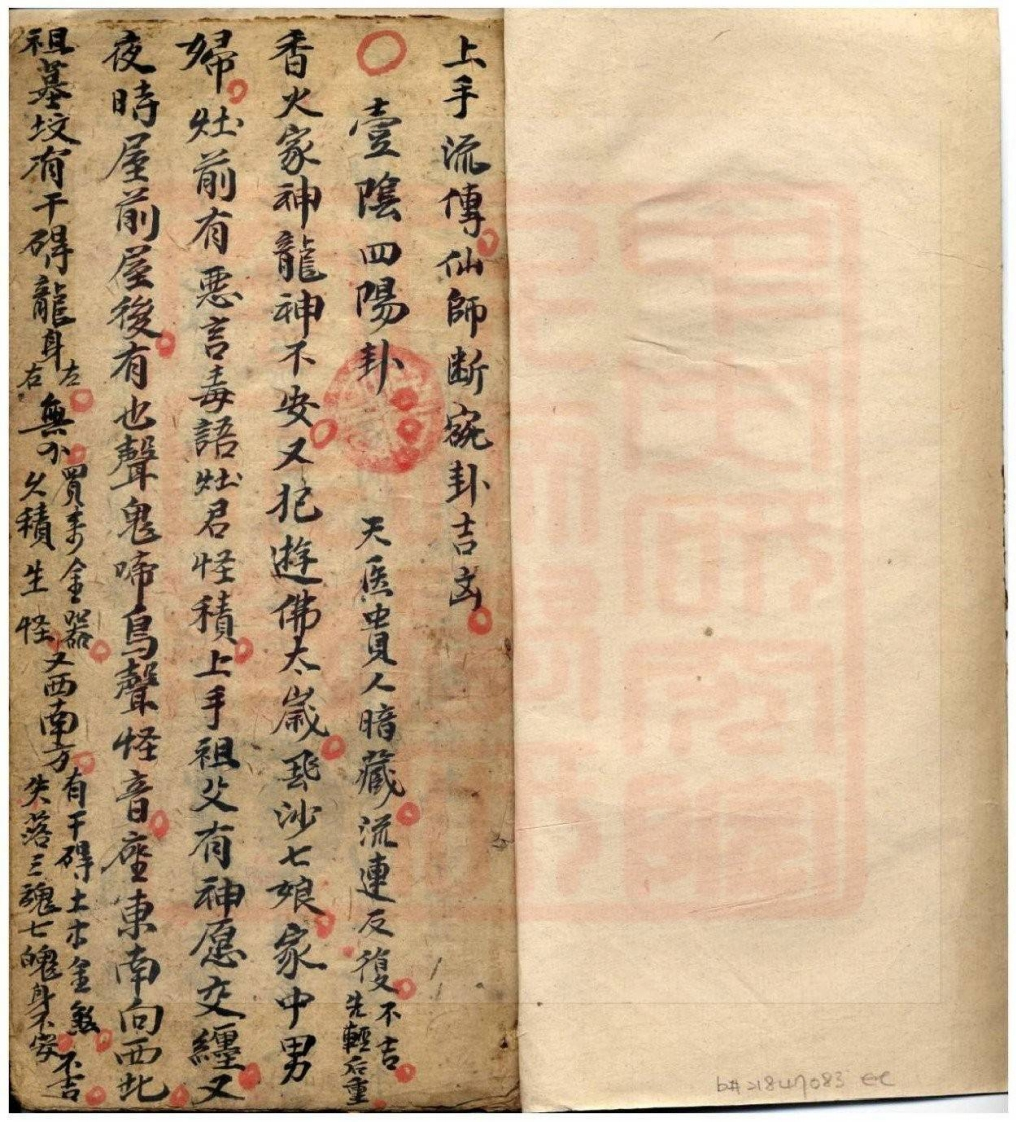 上手流傳仙師断䆓卦吉凶
壹陰四陽卦 天医貴人暗藏流連反復不吉先輕后重
香火家神龍神不安又犯遊佛太歲丧沙七娘家中男
婦灶前有悪言毒語灶君怪積上手祖父有神愿交纒又
夜時屋前屋後有也聲鬼啼鳥聲怪音座東南向西北
祖墓坟有干碍龍身左右無小買來金器久積生怪又西南方有干碍土木金煞失落三魂七魄身不安不吉
b#21847083